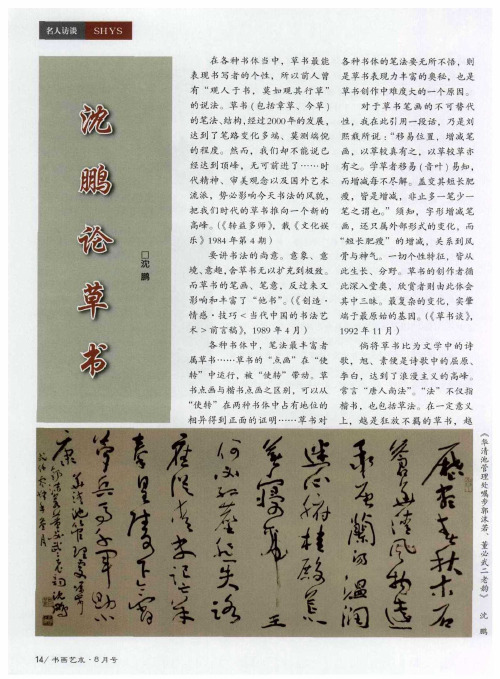 名人访谈 SHYS
沈鹏论草书
□沈鹏
在各种书体当中，草书最能
表现书写者的个性，所以前人曾
有“观人于书，莫如观其行草”
的说法。草书（包括章草、今草）
的笔法、结构，经过2000年的发展，
达到了笔路变化多端、莫测端倪
的程度。然而，我们却不能说已
经达到顶峰，无可前进了……时
代精神、审美观念以及国外艺术
流派，势必影响今天书法的风貌，
把我们时代的草书推向一个新的
高峰。（《转益多师》，载《文化娱
乐》1984年第4期）
要讲书法的尚意。意象、意
境、意趣，舍草书无以扩充到极致。
而草书的笔画、笔意，反过来又
影响和丰富了“他书”。（《创造·
情感·技巧＜当代中国的书法艺
术＞前言稿》，1989年4月）
各种书体中，笔法最丰富者
属草书……草书的“点画”在“使
转”中运行，被“使转”带动。草
书点画与楷书点画之区别，可以从
“使转”在两种书体中占有地位的
相异得到正面的证明……草书对
各种书体的笔法要无所不悟，则
是草书表现力丰富的奥秘，也是
草书创作中难度大的一个原因。
对于草书笔画的不可替代
性，我在此引用一段话，乃是刘
熙载所说：“移易位置，增减笔
画，以草较真有之，以草较草亦
有之。学草者移易（音叶）易知，
而增减每不尽解。盖变其短长肥
瘦，皆是增减，非止多一笔少一
笔之谓也。”须知，字形增减笔
画，还只属外部形式的变化，而
“短长肥瘦”的增减，关系到风
骨与神气。一切个性特征，皆从
此生长、分野。草书的创作者循
此深入堂奥，欣赏者则由此体会
其中三昧。最复杂的变化，实肇
端于最原始的基因。（《草书谈》，
1992年11月）
倘将草书比为文学中的诗
歌，旭、素便是诗歌中的屈原、
李白，达到了浪漫主义的高峰。
常言“唐人尚法”。“法”不仅指
楷书，也包括草法。在一定意义
上，越是狂放不羁的草书，越
《华清池管理处嘱步郭沫若、董必武二老韵》 沈鹏
14/ 书画艺术·8月号